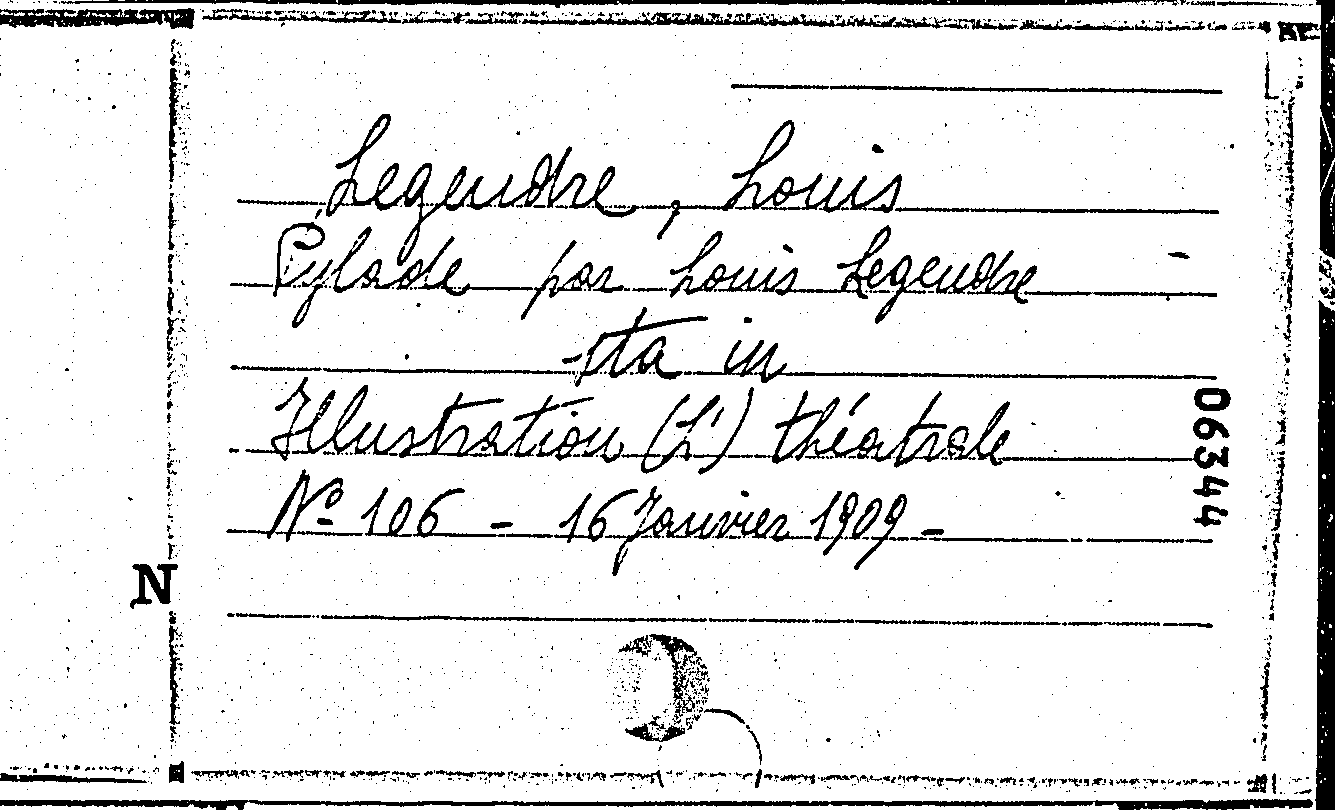 Legendre, Louis
Pylade par Louis Legendre
sta in
Illustration (L') théatrale
Nº 106 - 16 Janvier 1909 -
06344
N